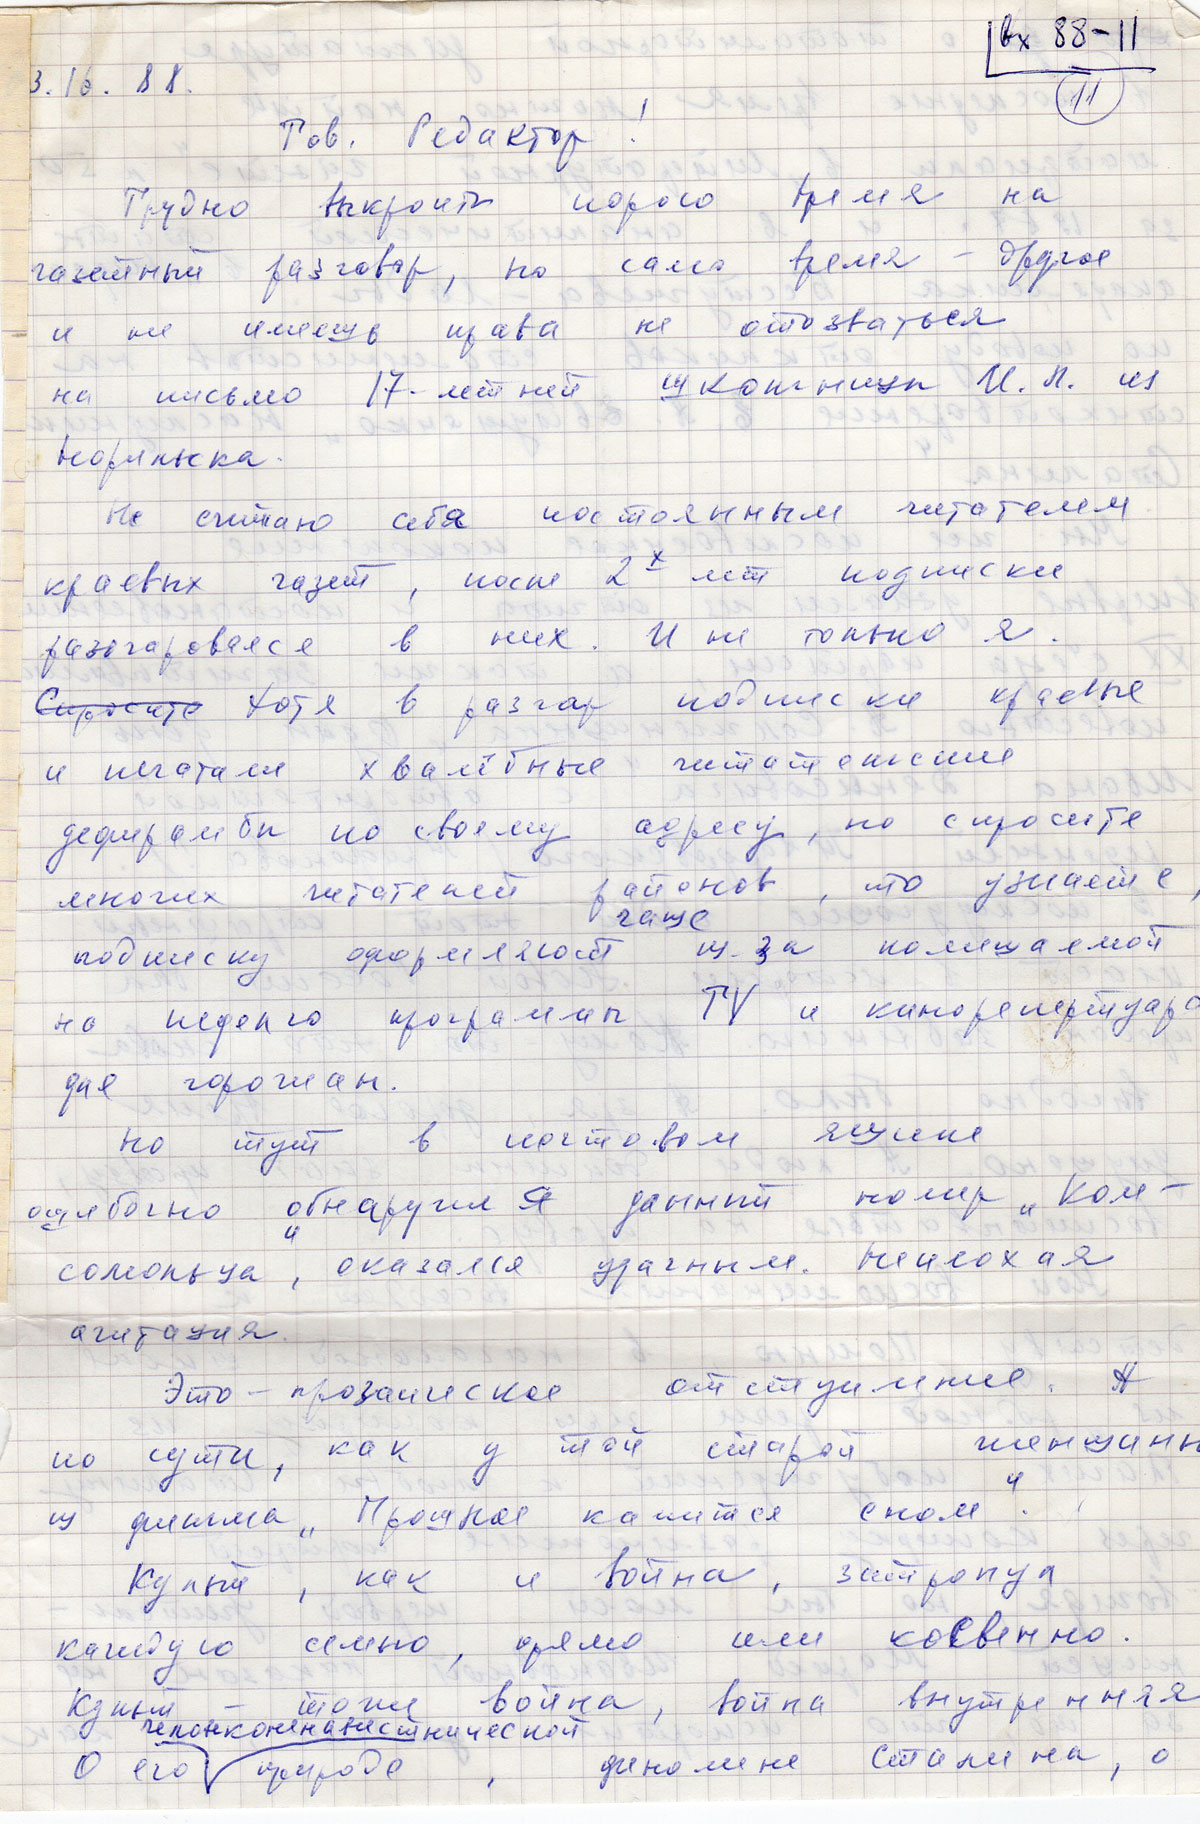 вх 88-11
11
3.10.88.
Тов. Редактор!
Трудно выкроить порою время на
газетный разговор, но само время – другое
и не имеешь права не отозваться
на письмо 17-летней школьницы И.Л. из
Норильска.
Не считаю себя постоянным читателем
краевых газет, после 2х лет подписки
разочаровался в них. И не только я.
Спросите Хотя в разгар подписки краевые
и печатали хвалебные читательские
дифирамбы по своему адресу, но спросите
многих читателей районов, то узнаете,
чаще
подписку оформляют из-за помещаемой
на неделю программы TV и кинорепертуара
для горожан.
Но тут в почтовом ящике
ошибочно обнаружил я данный номер „Ком-
сомольца", оказался удачным. Неплохая
агитация.
Это – прозаическое отступление. А
по сути, как у той старой женщины
из фильма „Прошлое кажется сном".
Культ, как и война, затронул
каждую семью, прямо или косвенно.
Культ – тоже война, война внутренняя
человеконенавистнической
О его природе, феномене Сталина, о